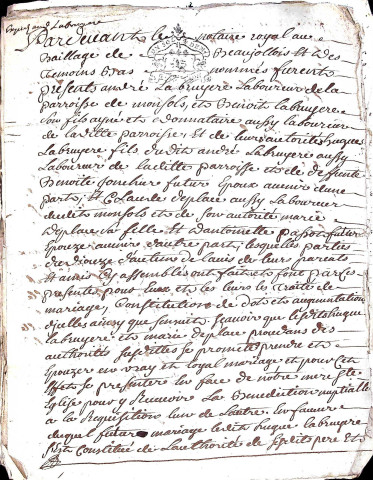 Pardevant le notaire royal au
Bailliage de Beaujollois Et des
temoins bas nommés furent
presents andré Labruyere Laboureur de la
parroisse de monsols, et Benoit Labruyere
son fils ayné et Donnataire aussy Laboureur
de la ditte parroisse, Et de leur authorité hugues
Labruyere fils dudit andré Labruyere aussy
Laboureur de laditte parroisse et de deffunte
Benoite futur Epoux avenir d'une
part, Et Claude deplace aussy Laboureur
dudit monsols et de son autorité marie
deplace sa fille Et d'antoinette future
Epouze avenir d'autre part, lesquelles parties
de l'avis de leurs parents
Et amis icy assemblés ont fait et font par les
presente pour Eux et les leurs le Traité de
mariage, Constitution de Dot et augmentation
d'icelle ainsy que s'ensuit scavoir que led hugue
Labruyere et marie deplace procedans des
authorités susdittes se promettent prendre et
Epouzer en vray et loyal mariage et pour cet
effet se presenter en face de nôtre mere Ste
Eglise pour y Recevoir La Benediction nuptialle
a la Requisition l'un de l'autre. En faveur
duquel futur mariage ledit hugue Labruyere
Constitue de l'authorité de sesdits pere Et